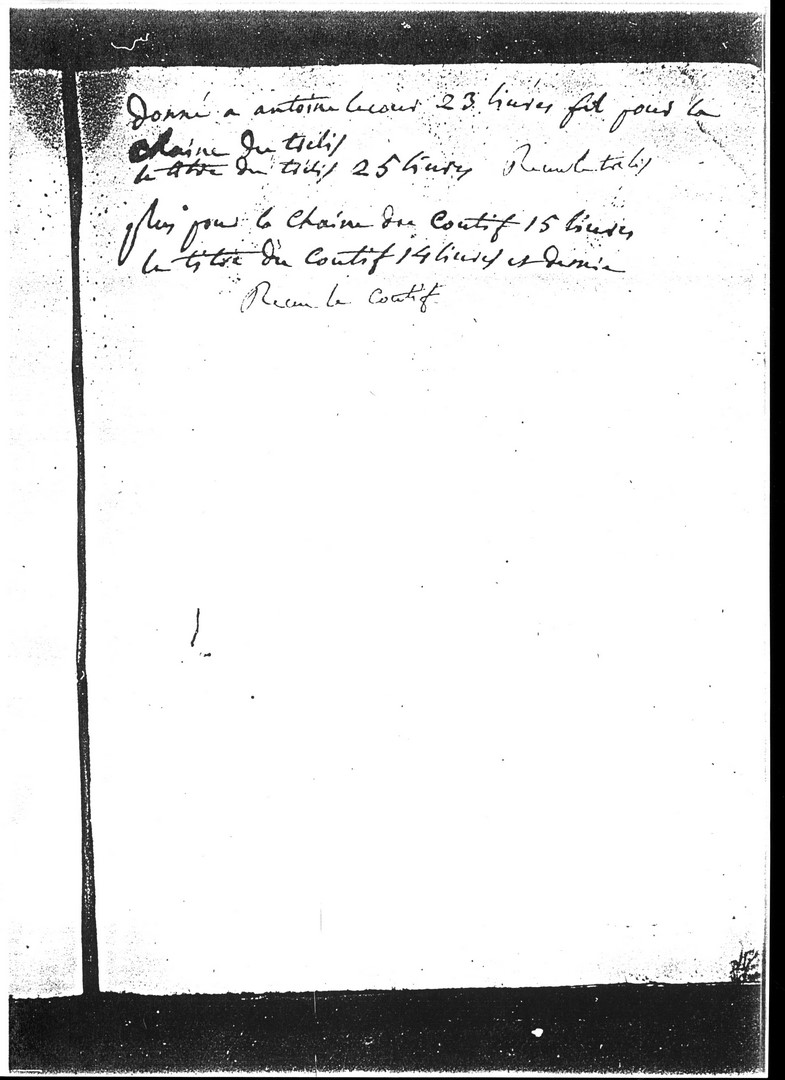 donné a antoine lecour 23 liures fil pour la
chaine du trelis
le titre du trelis 25 liures Receu le trelis
plus pour la chaine du Coutif 15 liures
le titre du Coutif 14 liures et demie
Receu le Coutif